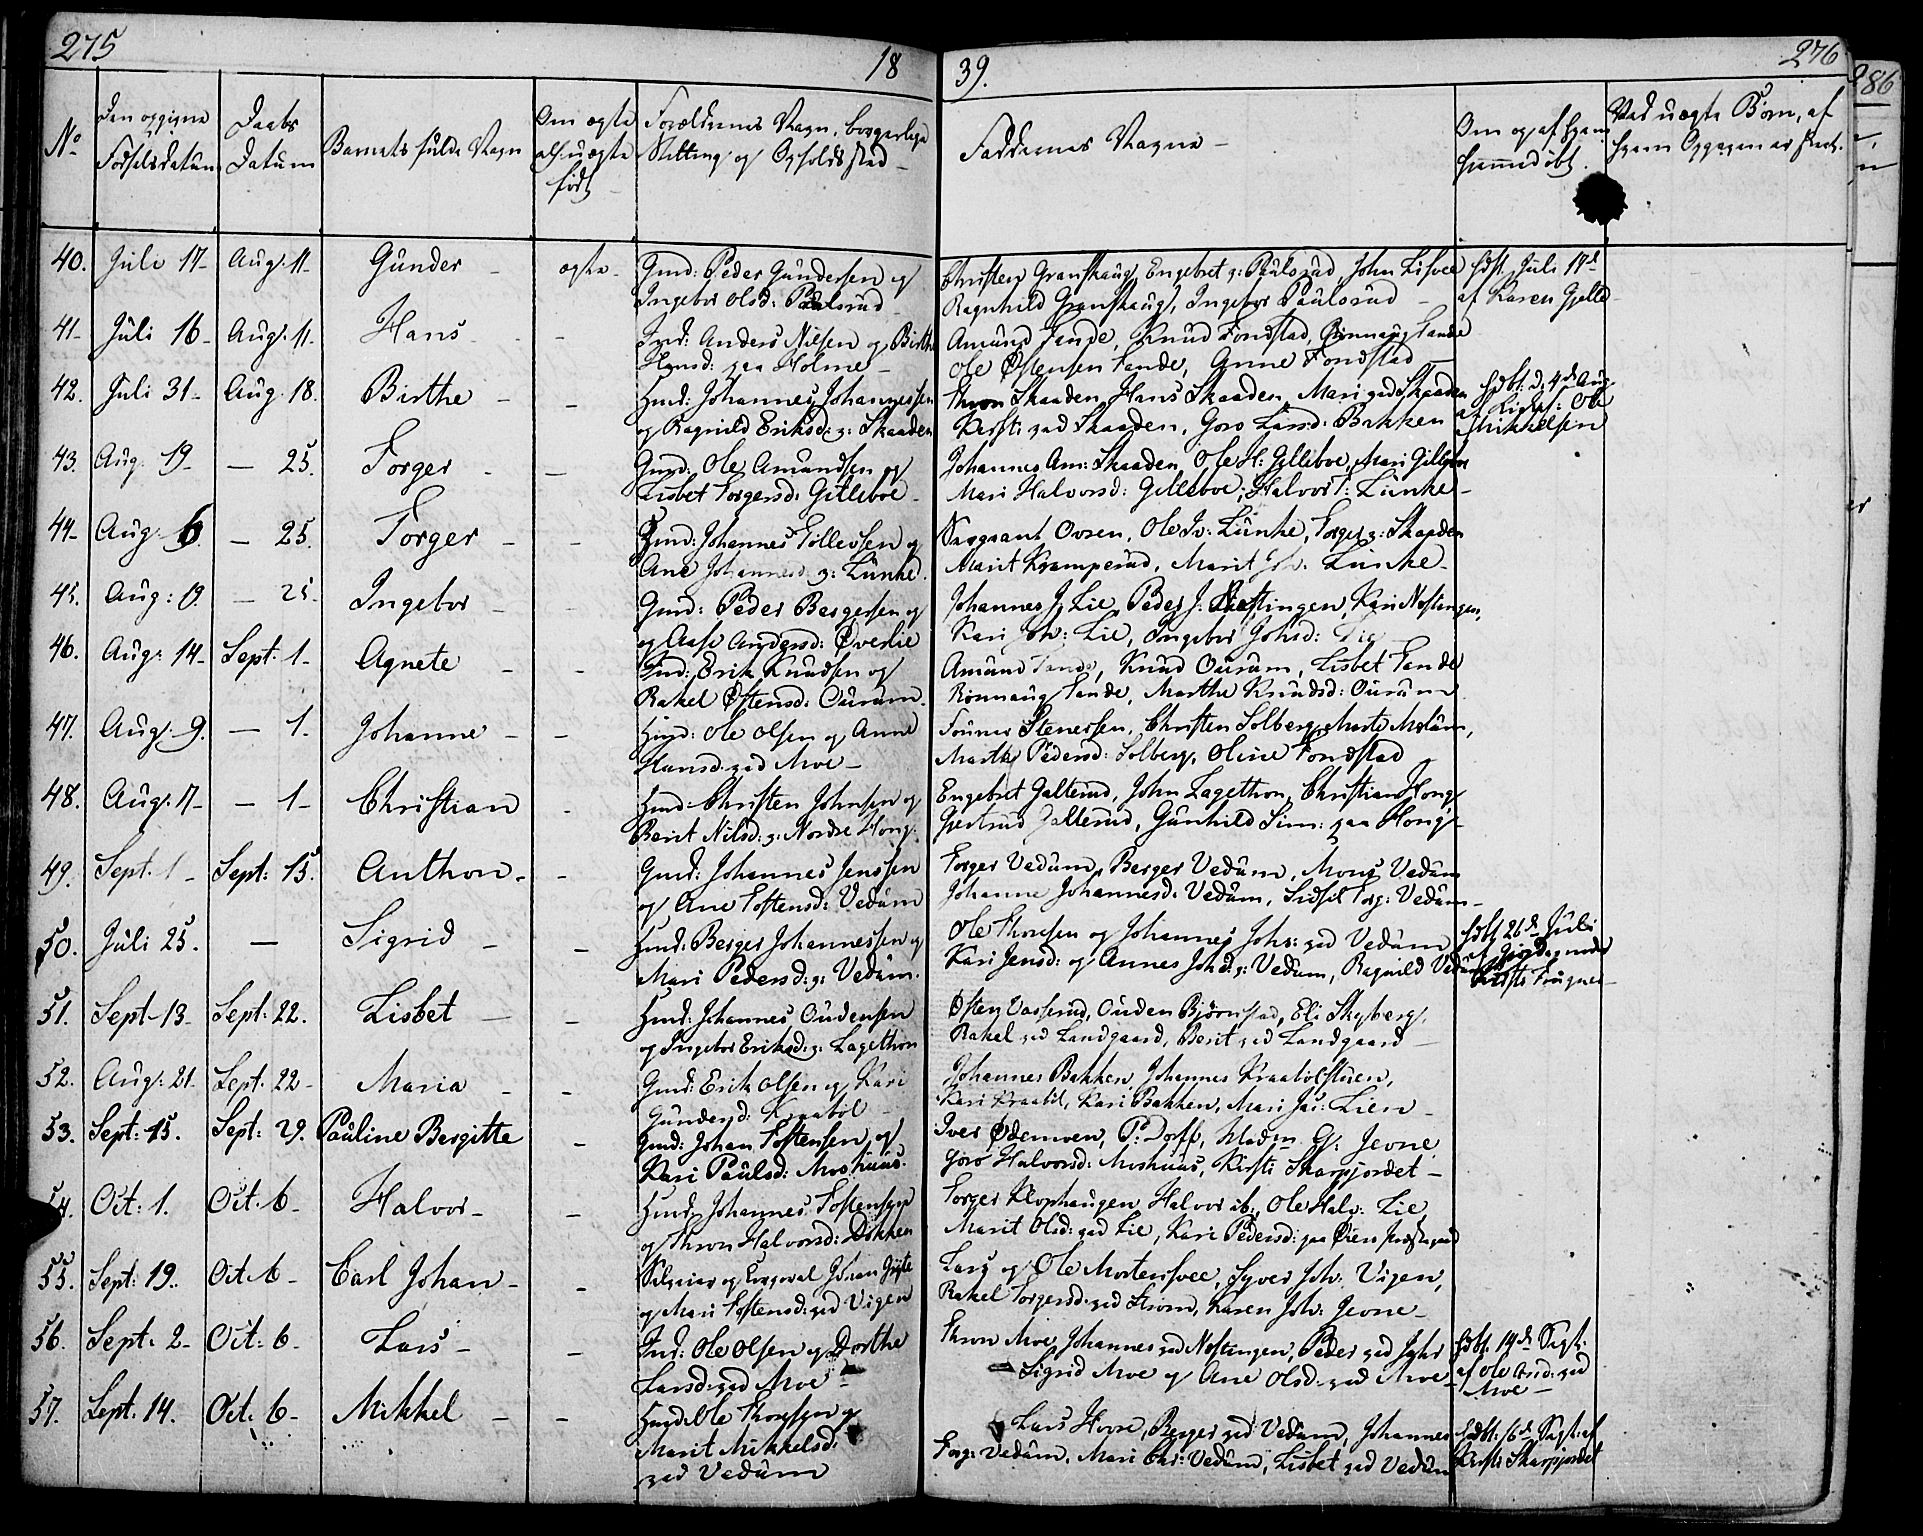 275
18
39.
276
286
No
Den opgivne Fødselsdatum
Daabs Datum
Barnets fulde Navn
Om ægte ell. uægte født
Forældrenes Navn, borgerlige Stilling og Opholdssted
Faddernes Navne
Om og af hvem hjemmedøbt
Ved uægte Børn, af hvem Opgaven er skeet.
40. Juli 17 Aug. 11 Gunder ægte Gmd: Peder Gundersen og
Ingebor Olsd: Paulsrud
Christen Granskaug, Engebret g: Paulsrud, John Lisvee
Ragnhild Granskaug, Ingebor Paulsrud
hdbt Juli 17d
af Karen Gylle
41 Juli 16 Aug. 11 Hans Ind: Anders Nilsen og Birthe
Hansd: paa Holme
Amund Tande, Knud Fondstad, Rønnaug Tande
Ole Østensen Tande, Anne Fondstad
42. Juli 31 Aug. 18. Birthe Hmd: Johannes Johannessen
og Ragnild Eriksd: g: Skaaden
Thron Skaaden, Hans Skaaden, Mari gad Skaaden
Kirsti gad Skaaden, Goro Larsd: Bakken
hdbt: d: 4d Aug.
Ole
Mikkelsen
43. Aug. 19 — 25. Torger Gmd: Ole Amundsen og
Lisbet Torgersd: Gilleboe
Johannes Am: Skaaden, Ole H: Gylleboe, Mari Gilleboe
Mari Halvorsd: Gilleboe, Halvor T: Lunke
44 Aug. 6 — 25. Torger Hmd: Johannes Tollevsen og
Ane Johannesd: g: Lunke.
Sergeant Ovren, Ole Iv: Lunke, Torger g: Skaaden
Marit Kramperud, Marit Joh: Lunke
45. Aug: 19. — 25. Ingebor Gmd: Peder Bergersen og
og Aase Andersd: Øverlie
Johannes J. Lie, Peder J: Nestingen, Kari Nestingen,
Kari Joh: Lie, Ingebor Johsd: Lie
46. Aug: 14 Sept. 1 Agnete Ind: Erik Knudsen og
Rakel Østensd: Ourum.
Amund Tande, Knud Ourum, Lisbet Tande
Rønnaug Tande, Marthe Knudsd: Ourum
47. Aug. 9. — 1. Johanne Hmd: Ole Olsen og Anne
Hansd: gad Moe
Stenersen, Christen Solberg, Marte Melum,
Marthe Pedersd: Solberg, Oline Fondstad
48. Aug. 17 — 1 Christian Hmd Christen Johnsen og
Berit Nilsd: g: Nordre Hong.
Engebret Jallerud, John Lagethon, Christian Hong
Gertrud Jallerud, Gunhild Sim: paa Hong
49. Sept. 1 Sept: 15. Anthon Gmd: Johannes Jenssen
og Ane Tostensd: Vedum
Torger Vedum, Berger Vedum, Mons Vedum
Johanne Johannesd: Vedum, Sidsel Torg: Vedum
50. Juli 25. — Sigrid Hmd: Berger Johannessen og
Mari Pedersd: g: Vedum.
Ole Thorsen og Johannes Johs: gad Vedum
Kari Jensd: og Annes Johd: g: Vedum, Ragnild Vedum
hdbt 26d Juli
af
Kirsti Fougner
51. Sept. 13 Sept: 22. Lisbet Hmd: Johannes Oudensen
og Ingebor Eriksd: g: Lagethon
Østen Vasserud, Ouden Bjørnstad, Eli Skyberg,
Rakel gad Landgaard, Berit gad Landgaard
52. Aug: 21. Sept. 22 Maria Gmd: Erik Olsen og Kari
Gundersd: Kraabøl
Johannes Bakken, Johannes Kraabølstuen,
Kari Kraabøl, Kari Bakken, Mari Jac: Lien
53. Sept: 15. Sept: 29. Pauline Bergitte Gmd: Johan Tostensen og
Kari Paulsd: Moshuus.
Iver Ødemoen, P: Dorff, Madm G: Jevne
Goro Halvorsd: Moshuus, Kirsti Skarpjordet
54. Oct: 1. Oct. 6 Halvor Hmd: Johannes Tostensen
og Thron Halvorsd: Dokken
Torger Klophaugen, Halvor ib:, Ole Halv: Lie,
Marit Olsd: gad Lie, Kari Pedersd: paa Øien
55. Sept: 19. Oct. 6 Carl Johan Johan
og Mari Tostensd: gad Vigen
Lars og Ole Mortensvee, Syver Joh: Vigen,
Rakel Torgersd: gad Strøm, Karen Joh: Jevne
56. Sept. 2 Oct: 6 Lars Ind: Ole Olsen og Dorthe
Larsd: gad Moe
Thron Moe, Johannes gad Nestingen, Peder gad
Sigrid Moe og Ane Olsd: gad Moe
hdbt. 14d Sept.
af Ole gad
Moe
57. Sept. 14. Oct. 6 Mikkel Hmd: Ole Thoresen og
Marit Mikkelsd:
gad Vedum
Lars Hovre, Berger gad Vedum, Johannes
Torg: Vedum, Mari Chr: Vedum, Lisbet gad Vedum
hdbt: 16d Sept: af
Kirsti Skarpjordet